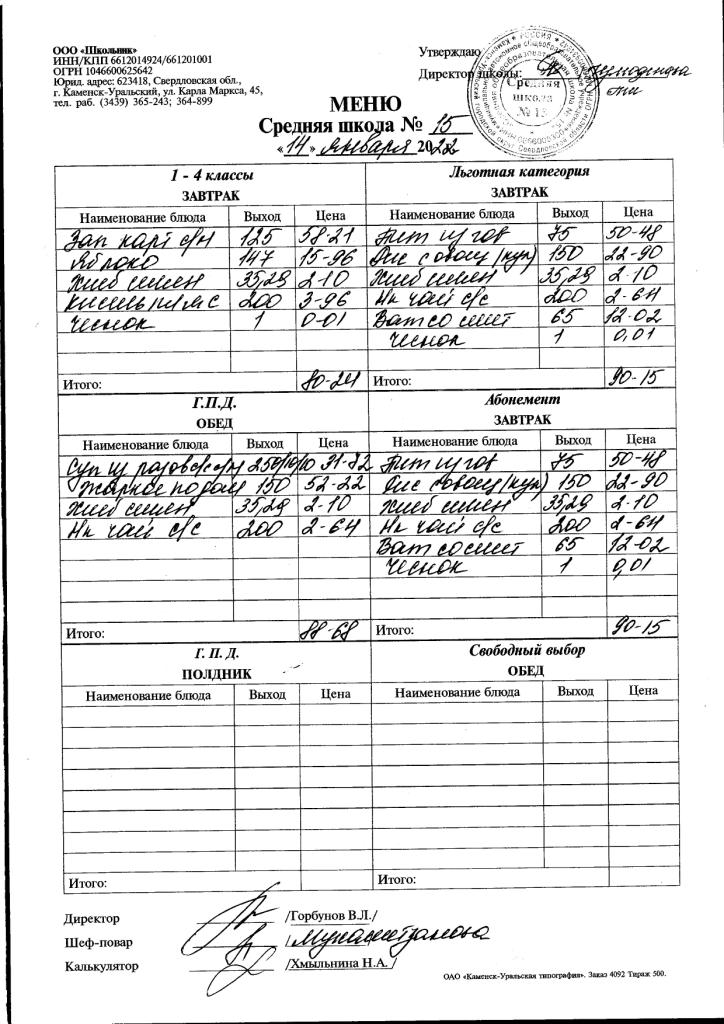 ООО «Школьник»
ИНН/КПП 6612014924/661201001
ОГРН 1046600625642
Юрид. адрес: 623418, Свердловская обл.,
г. Каменск-Уральский, ул. Карла Маркса, 45,
тел. раб. (3439) 365-243; 364-899
Утверждаю
Директор школы:
Средняя
школа
№ 15
МЕНЮ
Средняя школа № 15
«14» января 2022
1 - 4 классы
ЗАВТРАК
Наименование блюда Выход Цена
Зап карт с/м 125 58-21
Яблоко 147 15-96
Хлеб пшен 35,29 2-10
Кисель пл яг с 200 3-96
Чеснок 1 0-01
Итого: 80-24
Льготная категория
ЗАВТРАК
Наименование блюда Выход Цена
Бит из гов 75 50-48
Рис с овощ (кук) 150 22-90
Хлеб пшен 35,29 2-10
Нк чай с/с 200 2-64
Ват со смет 65 12-02
Чеснок 1 0,01
Итого: 90-15
Г.П.Д.
ОБЕД
Наименование блюда Выход Цена
Суп из 250/10/10 31-72
Жаркое по дом 150 52-22
Хлеб пшен 35,29 2-10
Нк чай с/с 200 2-64
Итого: 88-68
Абонемент
ЗАВТРАК
Наименование блюда Выход Цена
Бит из гов 75 50-48
Рис с овощ (кук) 150 22-90
Хлеб пшен 35,29 2-10
Нк чай с/с 200 2-64
Ват со смет 65 12-02
Чеснок 1 0,01
Итого: 90-15
Г. П. Д.
ПОЛДНИК
Наименование блюда Выход Цена
Итого:
Свободный выбор
ОБЕД
Наименование блюда Выход Цена
Итого:
Директор /Горбунов В.Л./
Шеф-повар /
Калькулятор /Хмыльнина Н.А. /
ОАО «Каменск-Уральская типография». Заказ 4092 Тираж 500.